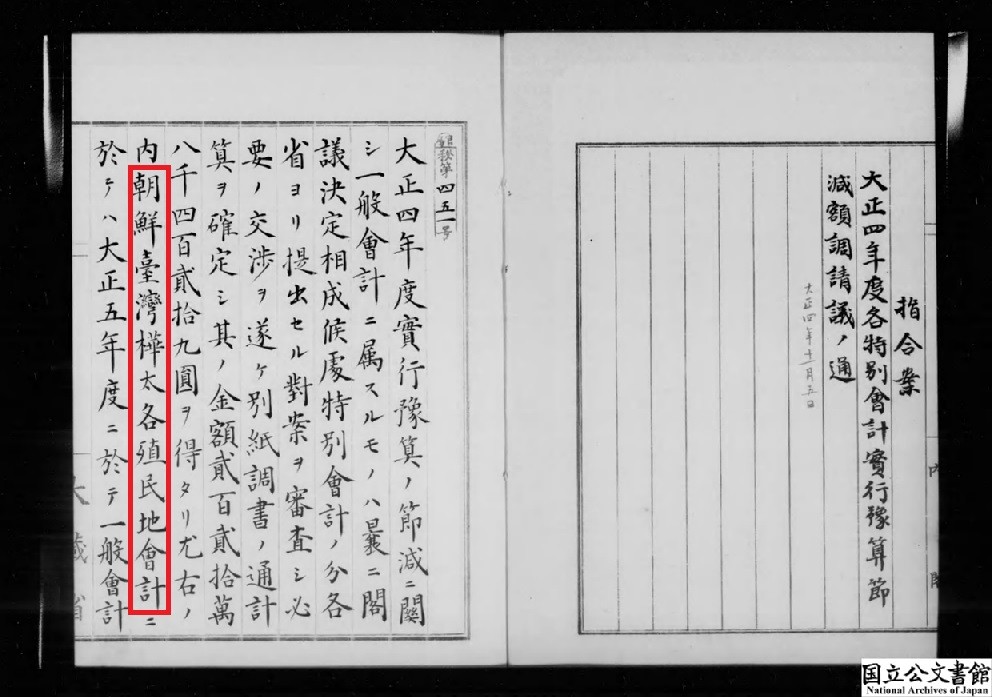 指令案
大正四年度各特別會計實行豫算節
減額調請議ノ通
大正四年十一月五日
第四五一号
大正四年度實行豫算ノ節減ニ關
シ一般會計ニ属スルモノハ曩ニ閣
議決定相成候處特別會計ノ分各
省ヨリ提出セル對案ヲ審査シ必
要ノ交渉ヲ遂ケ別紙調書ノ通計
算ヲ確定シ其ノ金額貳百貳拾萬
八千四百貳拾九圓ヲ得タリ尤右ノ
内朝鮮臺灣樺太各殖民地會計ニ
於テハ大正五年度ニ於テ一般會計
大藏省
内閣
国立公文書館
National Archives of Japan